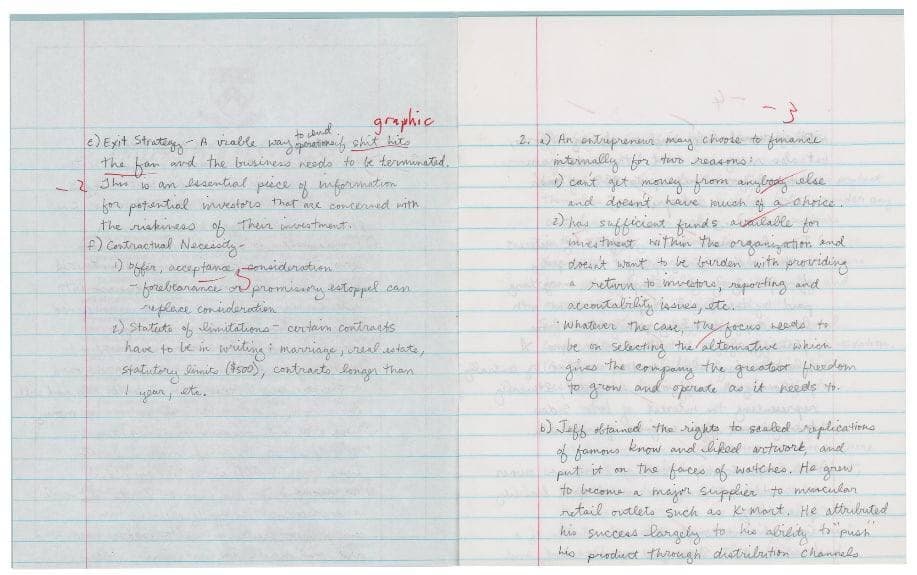 graphic
e) Exit Strategy - A viable way to end operations if shit hits
the fan and the business needs to be terminated.
-2 This is an essential piece of information
for potential investors that are concerned with
the riskiness of their investment.
f) Contractual Necessity -
1) offer, acceptance, consideration
- forebearance or promissory estoppel can
replace consideration
2) Statute of limitations - certain contracts
have to be in writing: marriage, real estate,
statutory limits ($500), contracts longer than
1 year, etc.
-3
2. a) An entrepreneur may choose to finance
internally for two reasons:
1) can't get money from anybody else
and doesn't have much of a choice.
2) has sufficient funds available for
investment within the organization and
doesn't want to be burden with providing
a return to investors, reporting and
accountability issues, etc.
Whatever the case, the focus needs to
be on selecting the alternative which
gives the company the greatest freedom
to grow and operate as it needs to.
b) Jeff obtained the rights to scaled replications
of famous know and liked artwork, and
put it on the faces of watches. He grew
to become a major supplier to
retail outlets such as K-mart. He attributed
his success largely to his ability to "push"
his product through distribution channels